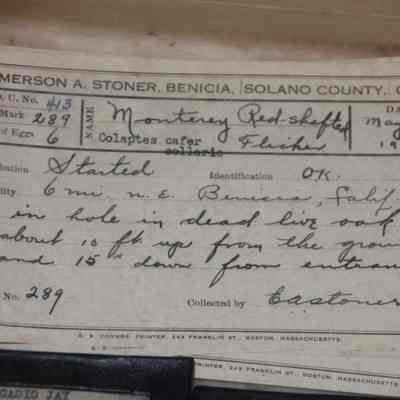 MERSON A. STONER, BENICIA, SOLANO COUNTY, C
O. U. No. 413
Mark 289
of Eggs 6
NAME
Monterey Red-shafted
Flicker
Colaptes cafer
collaris
DA
May
19
bation Started Identification OK.
lity 6 mi. n.E. Benicia, Calif.
in hole in dead live oak
about 10 ft. up from the grou
and 15" down from entran
No. 289 Collected by EAStoner
D. S. CONVERS, PRINTER, 242 FRANKLIN ST., BOSTON, MASSACHUSETTS.
PRINTER, 242 FRANKLIN ST., BOSTON, MASSACHUSETTS
GADIO JAY